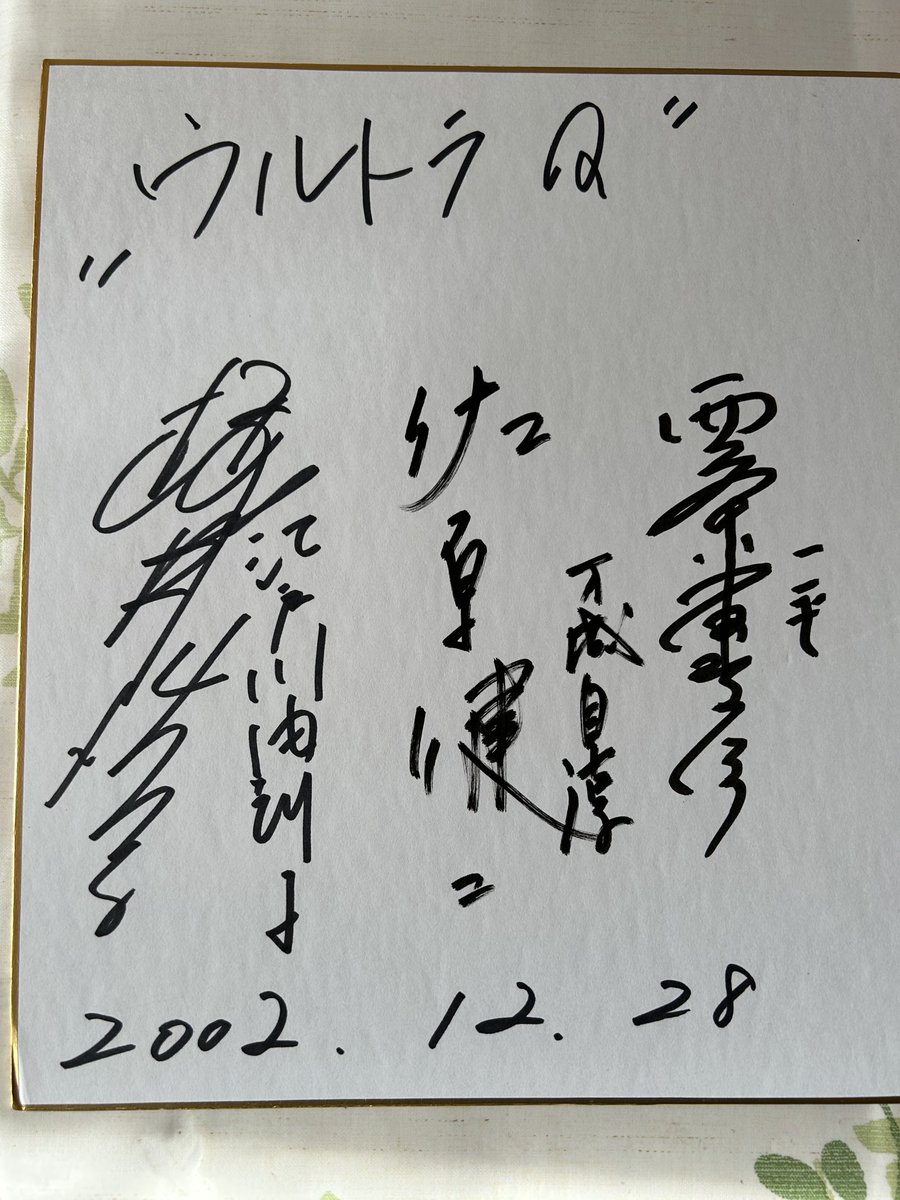 "ウルトラQ"
一平
西條康彦
万城目淳
佐原健二
江戸川由利子
桜井浩子
2002. 12. 28